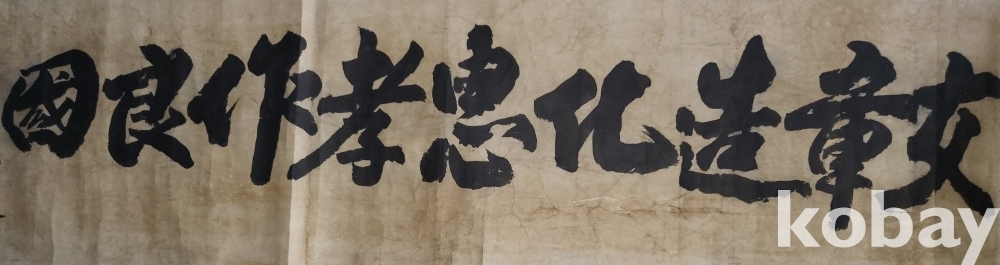 文章造化忠孝作良國
kobay